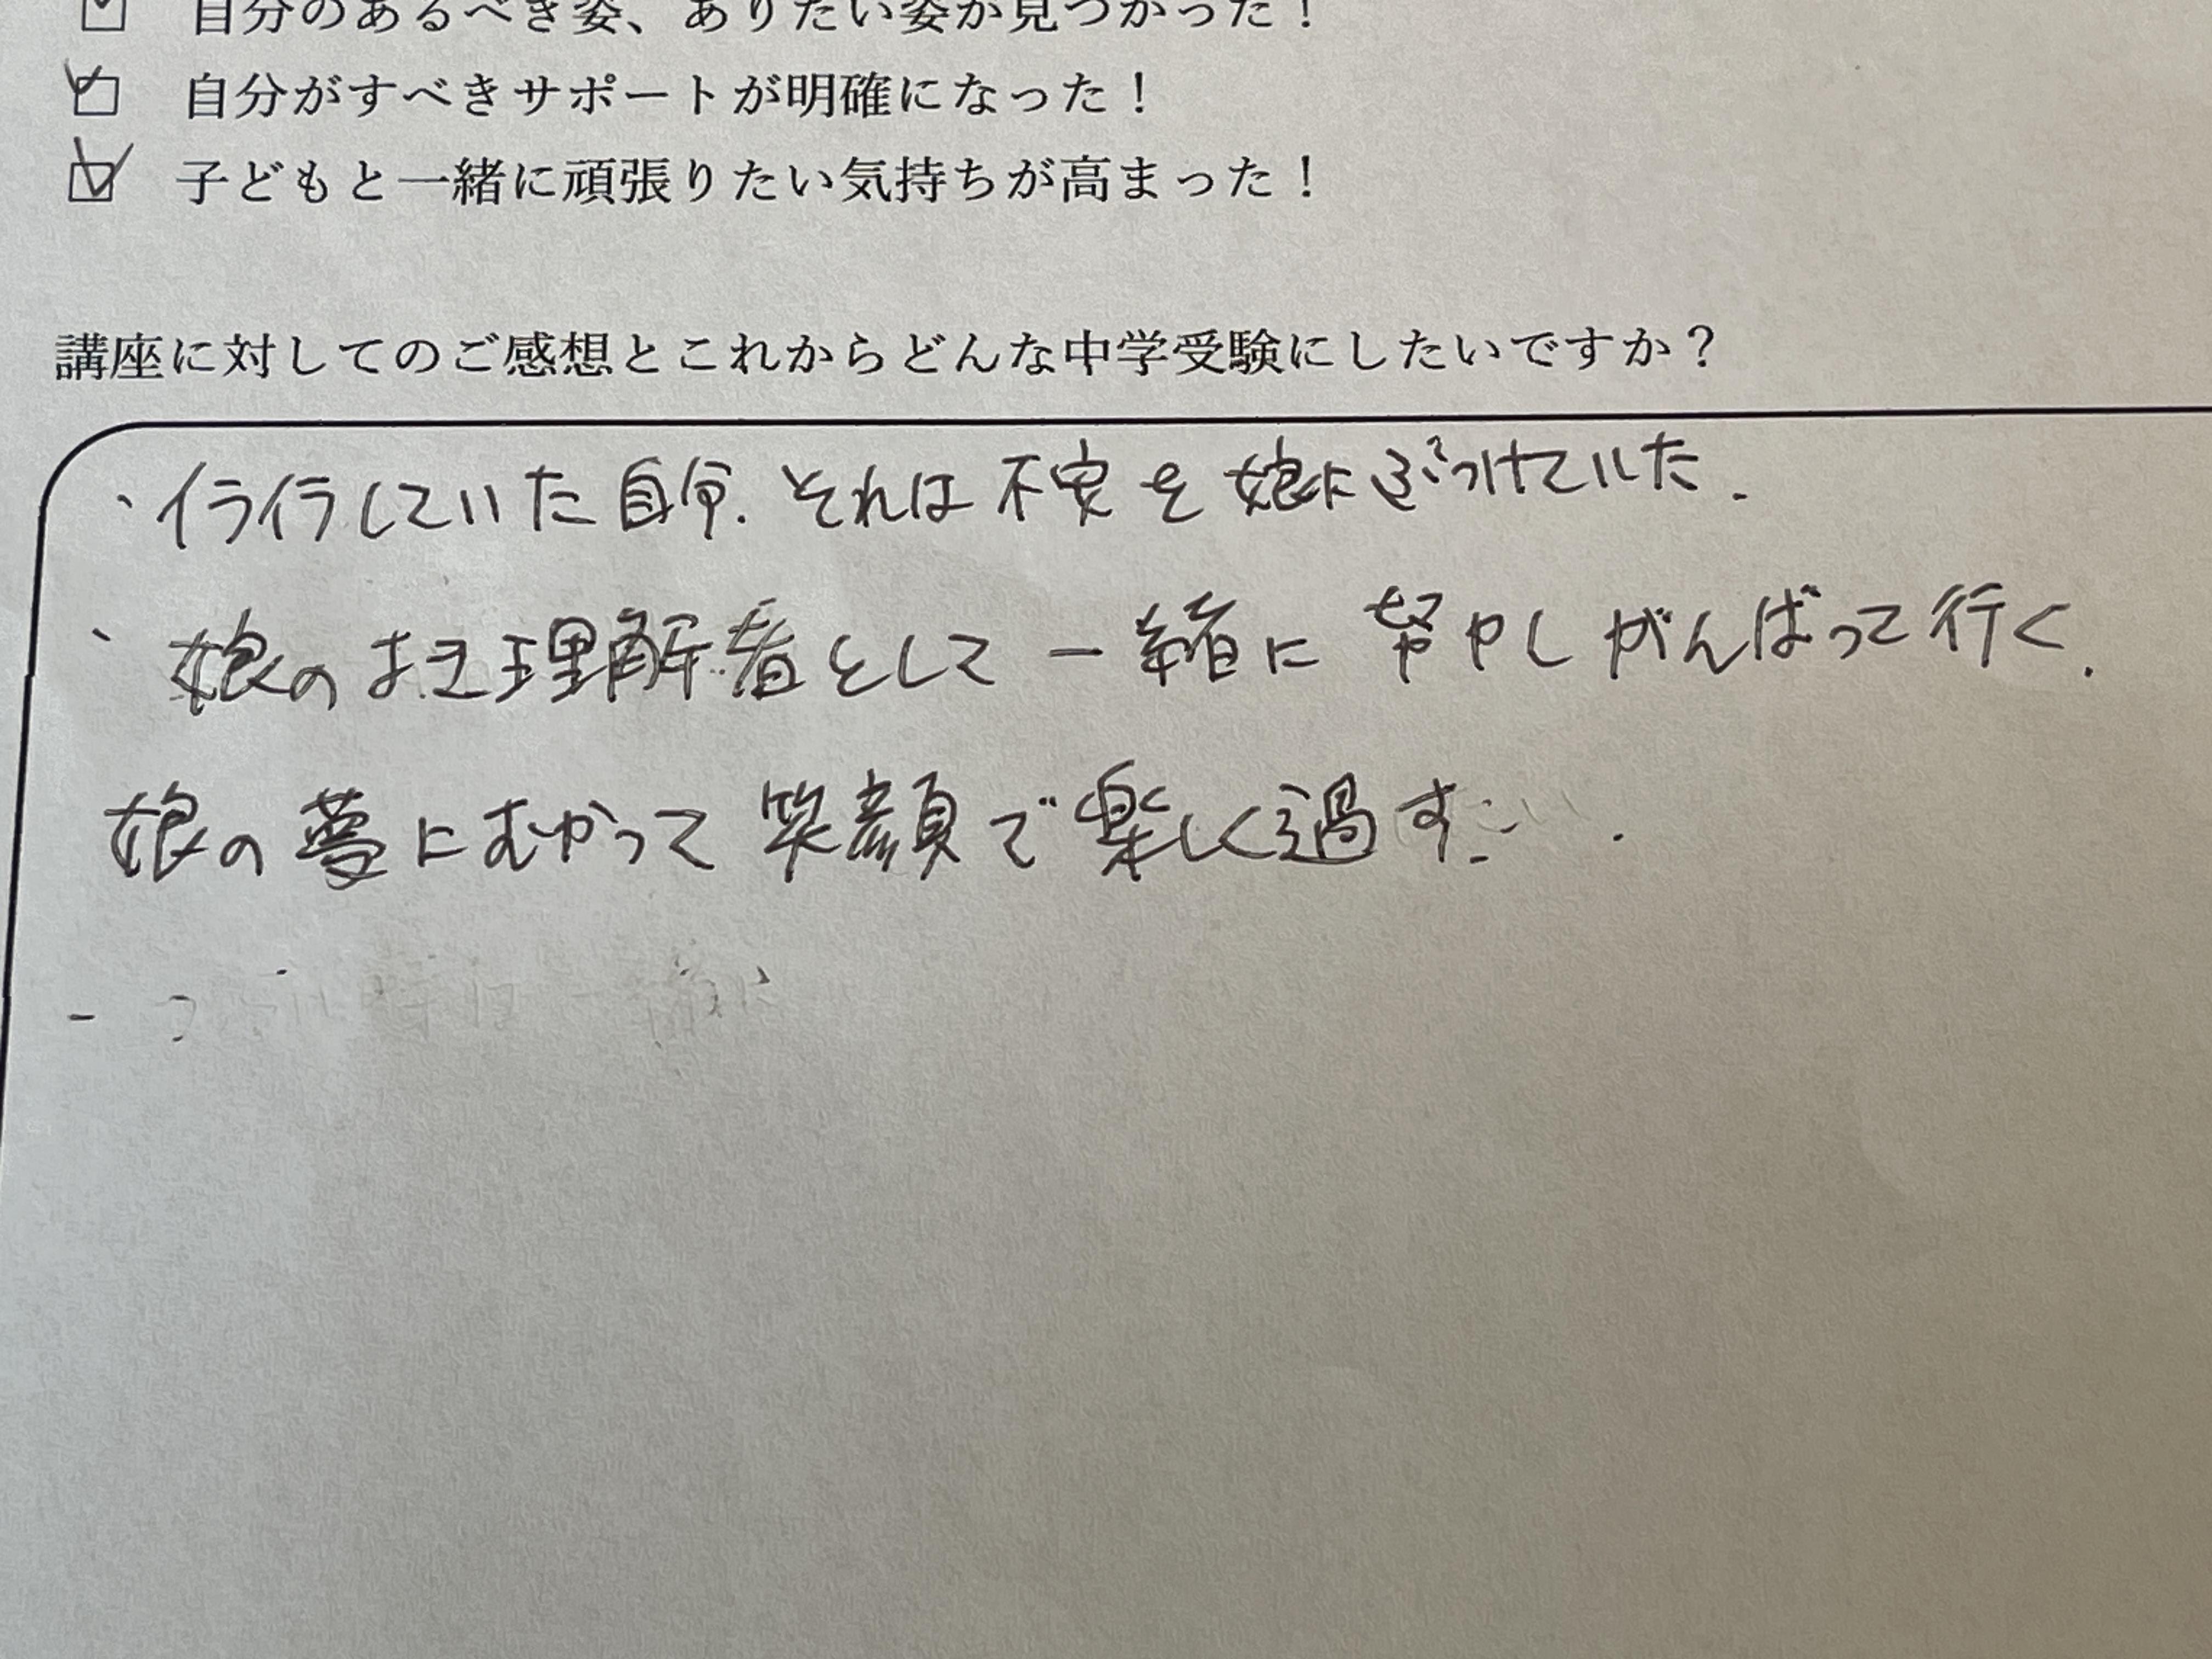 自分のあるべき姿、ありたい姿が見つかった！
自分がすべきサポートが明確になった！
子どもと一緒に頑張りたい気持ちが高まった！
講座に対してのご感想とこれからどんな中学受験にしたいですか？
、イライラしていた自分．それは不安を娘にぶつけていた．
、娘のよき理解者として一緒に努力しがんばって行く．
娘の夢にむかって笑顔で楽しく過す